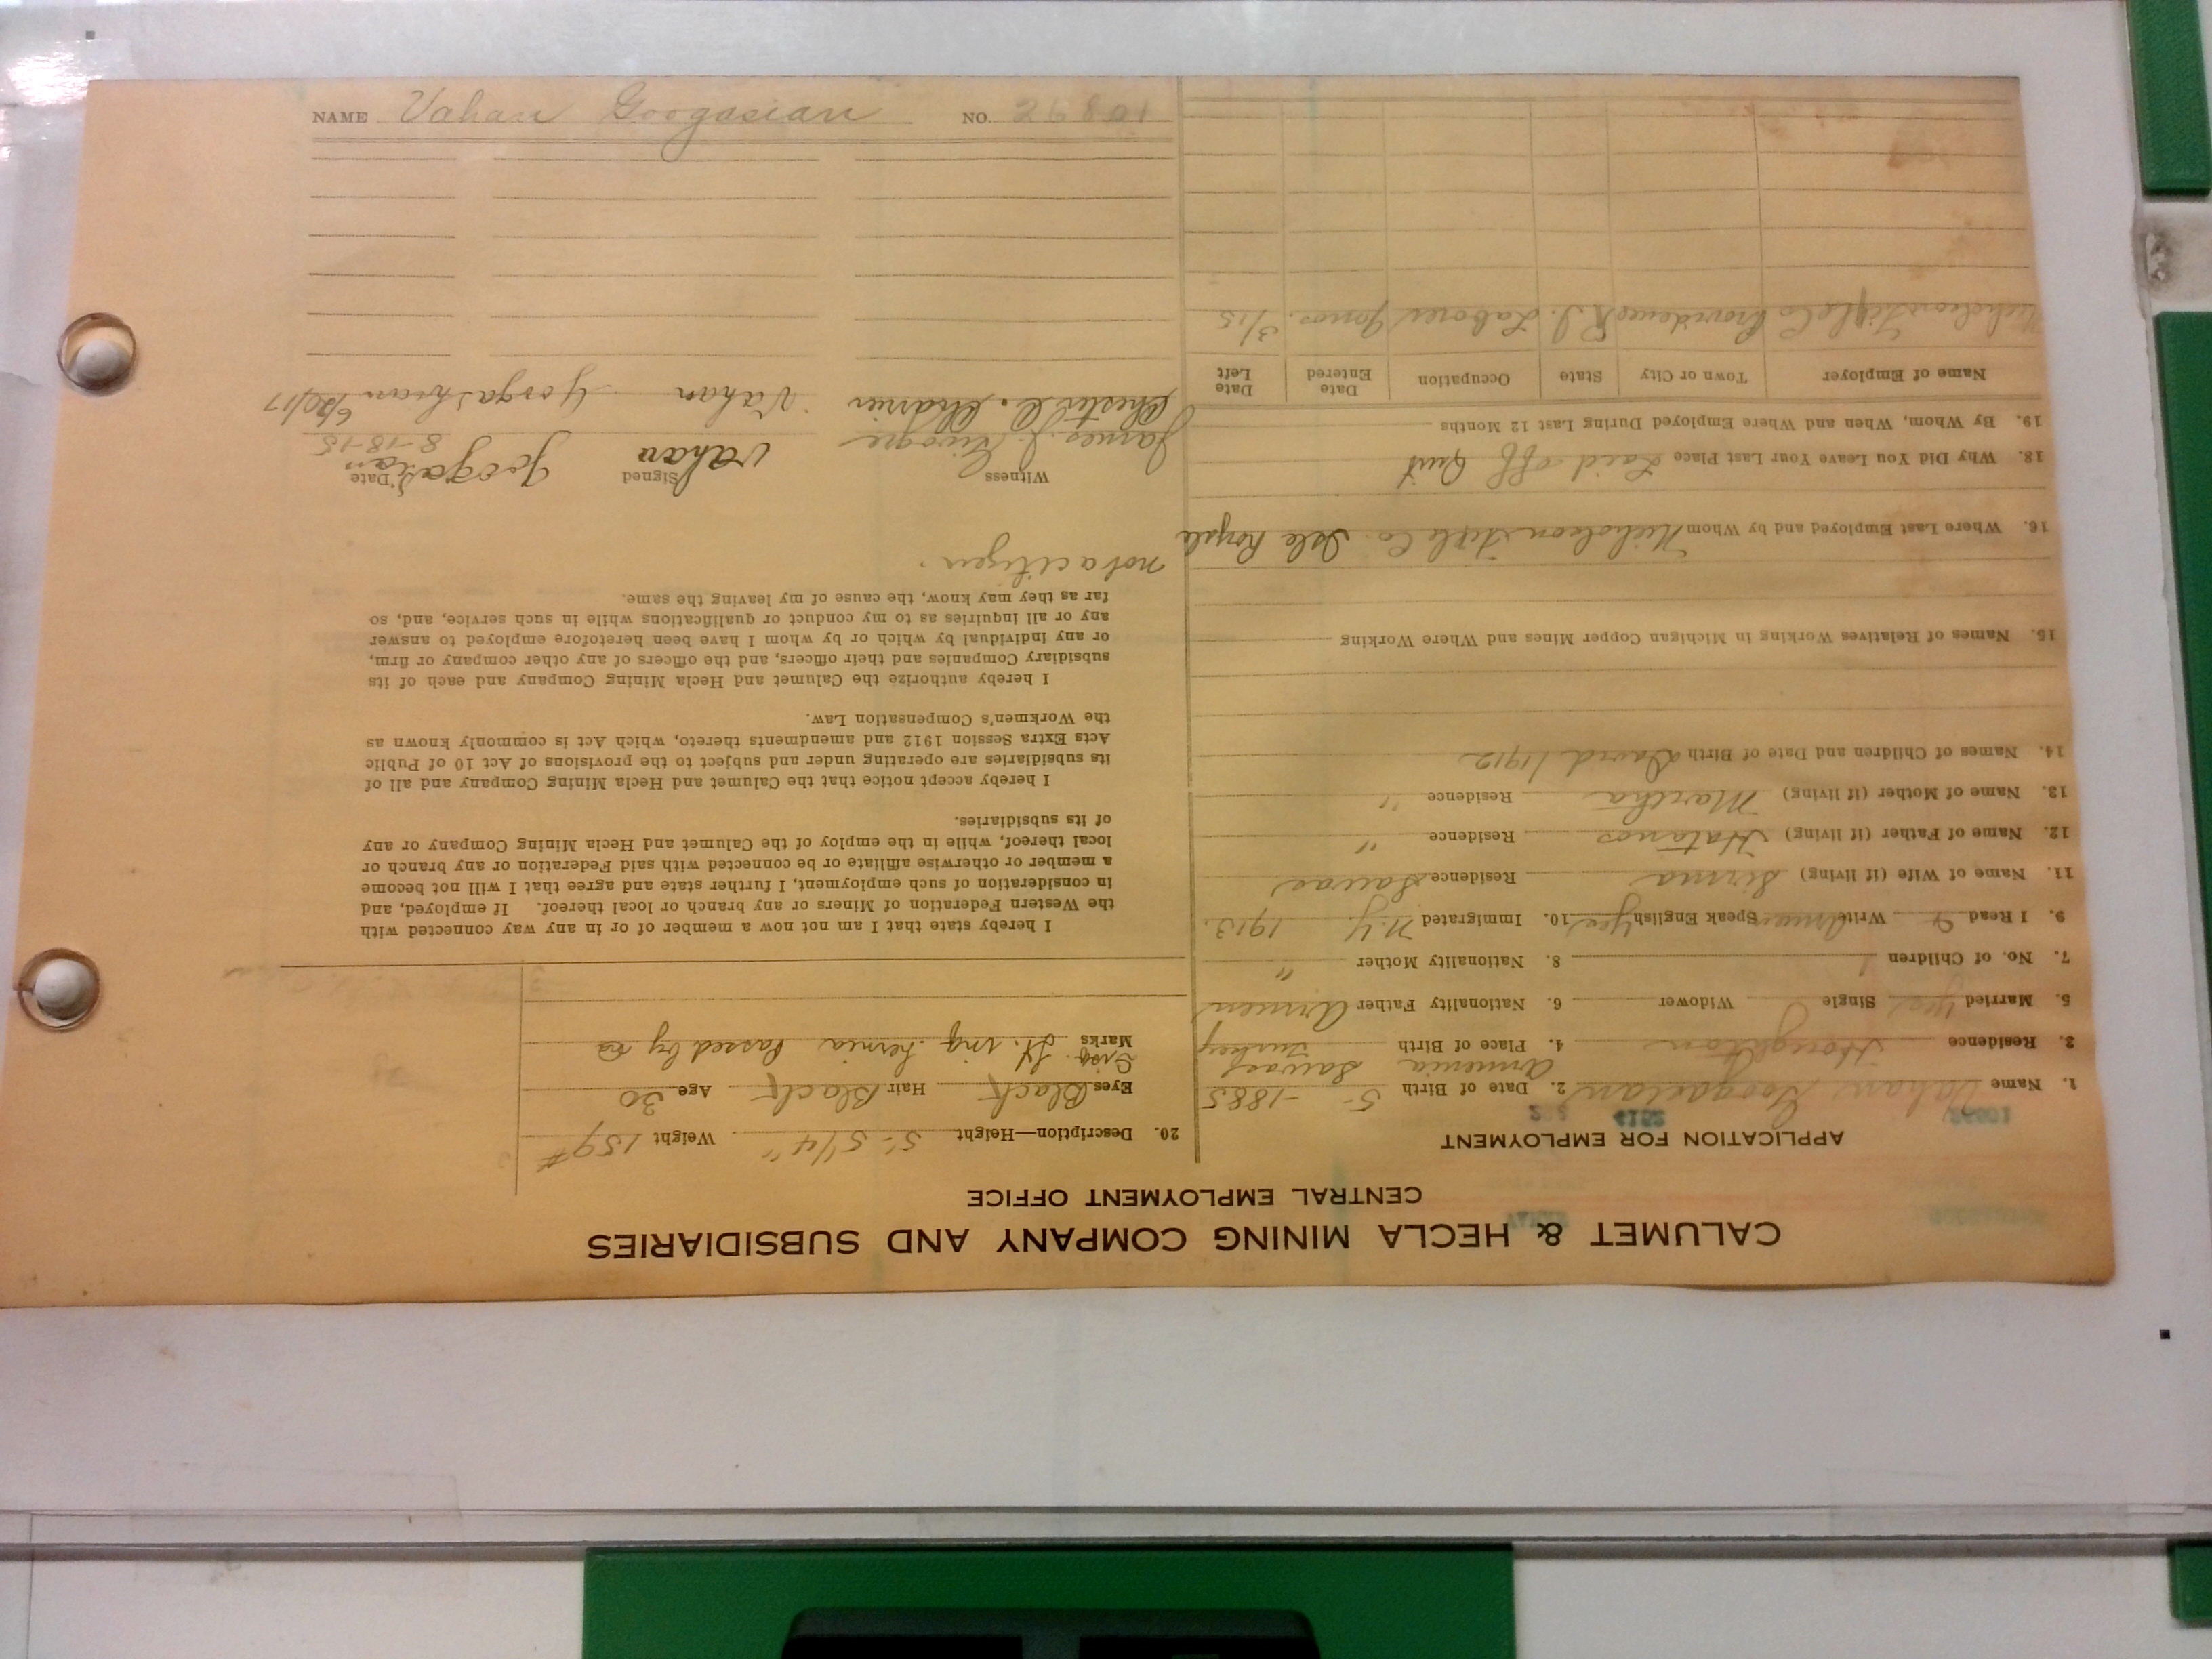 CALUMET & HECLA MINING COMPANY AND SUBSIDIARIES
CENTRAL EMPLOYMENT OFFICE
APPLICATION FOR EMPLOYMENT
26801 4152
1. Name Vahan Googasian 2. Date of Birth 5- -1885
3. Residence Houghton 4. Place of Birth Armenia Turkey
5. Married Yes Single Widower 6. Nationality Father Armen
7. No. of Children 1 8. Nationality Mother "
9. I Read & Write Armen Speak English Yes 10. Immigrated N.Y. 1913.
11. Name of Wife (if living) Sirma Residence
12. Name of Father (if living) Residence "
13. Name of Mother (if living) Martha Residence "
14. Names of Children and Date of Birth David 1912
15. Names of Relatives Working in Michigan Copper Mines and Where Working
16. Where Last Employed and by Whom Nicholson File Co. Isle Royale
18. Why Did You Leave Your Last Place Laid off Quit
19. By Whom, When and Where Employed During Last 12 Months
Name of Employer Town or City State Occupation Date Entered Date Left
Nicholson File Co Providence R.I. Laborer 3/15
20. Description—Height 5'- 5 1/4" Weight 159#
Eyes Black Hair Black Age 30
Marks Lt. ing. hernia Passed by
I hereby state that I am not now a member of or in any way connected with
the Western Federation of Miners or any branch or local thereof. If employed, and
in consideration of such employment, I further state and agree that I will not become
a member or otherwise affiliate or be connected with said Federation or any branch or
local thereof, while in the employ of the Calumet and Hecla Mining Company or any
of its subsidiaries.
I hereby accept notice that the Calumet and Hecla Mining Company and all of
its subsidiaries are operating under and subject to the provisions of Act 10 of Public
Acts Extra Session 1912 and amendments thereto, which Act is commonly known as
the Workmen's Compensation Law.
I hereby authorize the Calumet and Hecla Mining Company and each of its
subsidiary Companies and their officers, and the officers of any other company or firm,
or any individual by which or by whom I have been heretofore employed to answer
any or all inquiries as to my conduct or qualifications while in such service, and, so
far as they may know, the cause of my leaving the same.
not a citizen.
Witness Signed Date
James J. Vahan Googasian 8-18-15
Chester C. Vahan Googashian 6/20/17
NAME Vahan Googasian NO. 26801